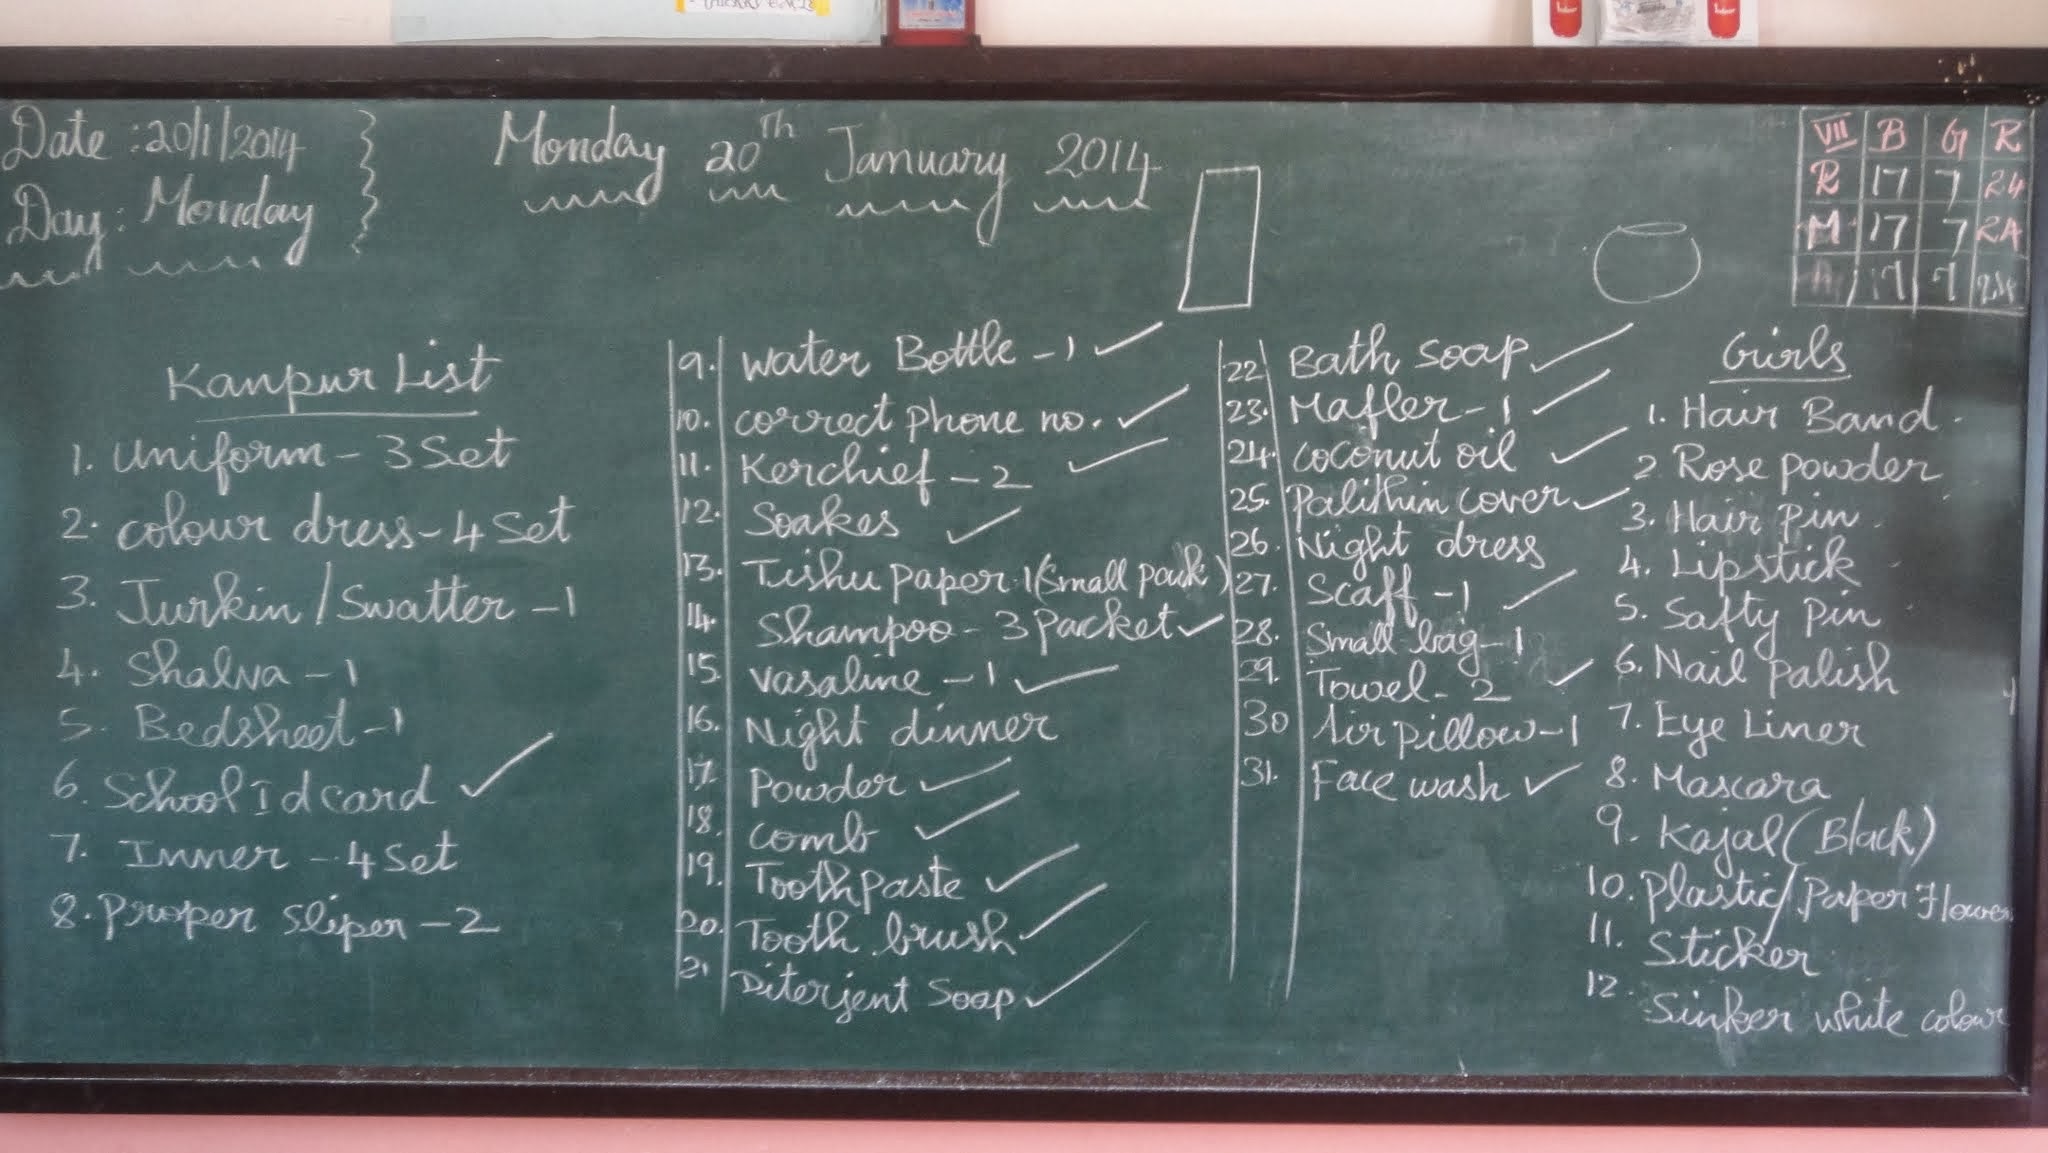 Date : 20/1/2014
Day : Monday
Monday 20th January 2014
VII B G R
R 17 7 24
M 17 7 24
A 17 7 24
Kanpur List
1. Uniform - 3 Set
2. colour dress - 4 Set
3. Jurkin / Swatter - 1
4. Shalva - 1
5. Bedsheet - 1
6. School Id card ✓
7. Inner - 4 Set
8. Proper Sliper - 2
9. Water Bottle - 1 ✓
10. correct phone no. ✓
11. Kerchief - 2 ✓
12. Soakes ✓
13. Tishu paper - 1 (Small pack)
14. Shampoo - 3 Packet ✓
15. Vasaline - 1 ✓
16. Night dinner
17. Powder ✓
18. comb ✓
19. Toothpaste ✓
20. Tooth brush ✓
21 Diterjent Soap ✓
22. Bath Soap ✓
23. Mafler - 1 ✓
24. coconut oil ✓
25. Palithin cover ✓
26. Night dress
27. Scaff - 1 ✓
28. Small bag - 1
29. Towel - 2 ✓
30 Air pillow - 1
31. Face wash ✓
Girls
1. Hair Band.
2 Rose powder
3. Hair pin.
4. Lipstick
5. Safty pin
6. Nail palish
7. Eye Liner
8. Mascara
9. Kajal (Black)
10. Plastic / Paper Flower
11. Sticker
12. Sinker white colour